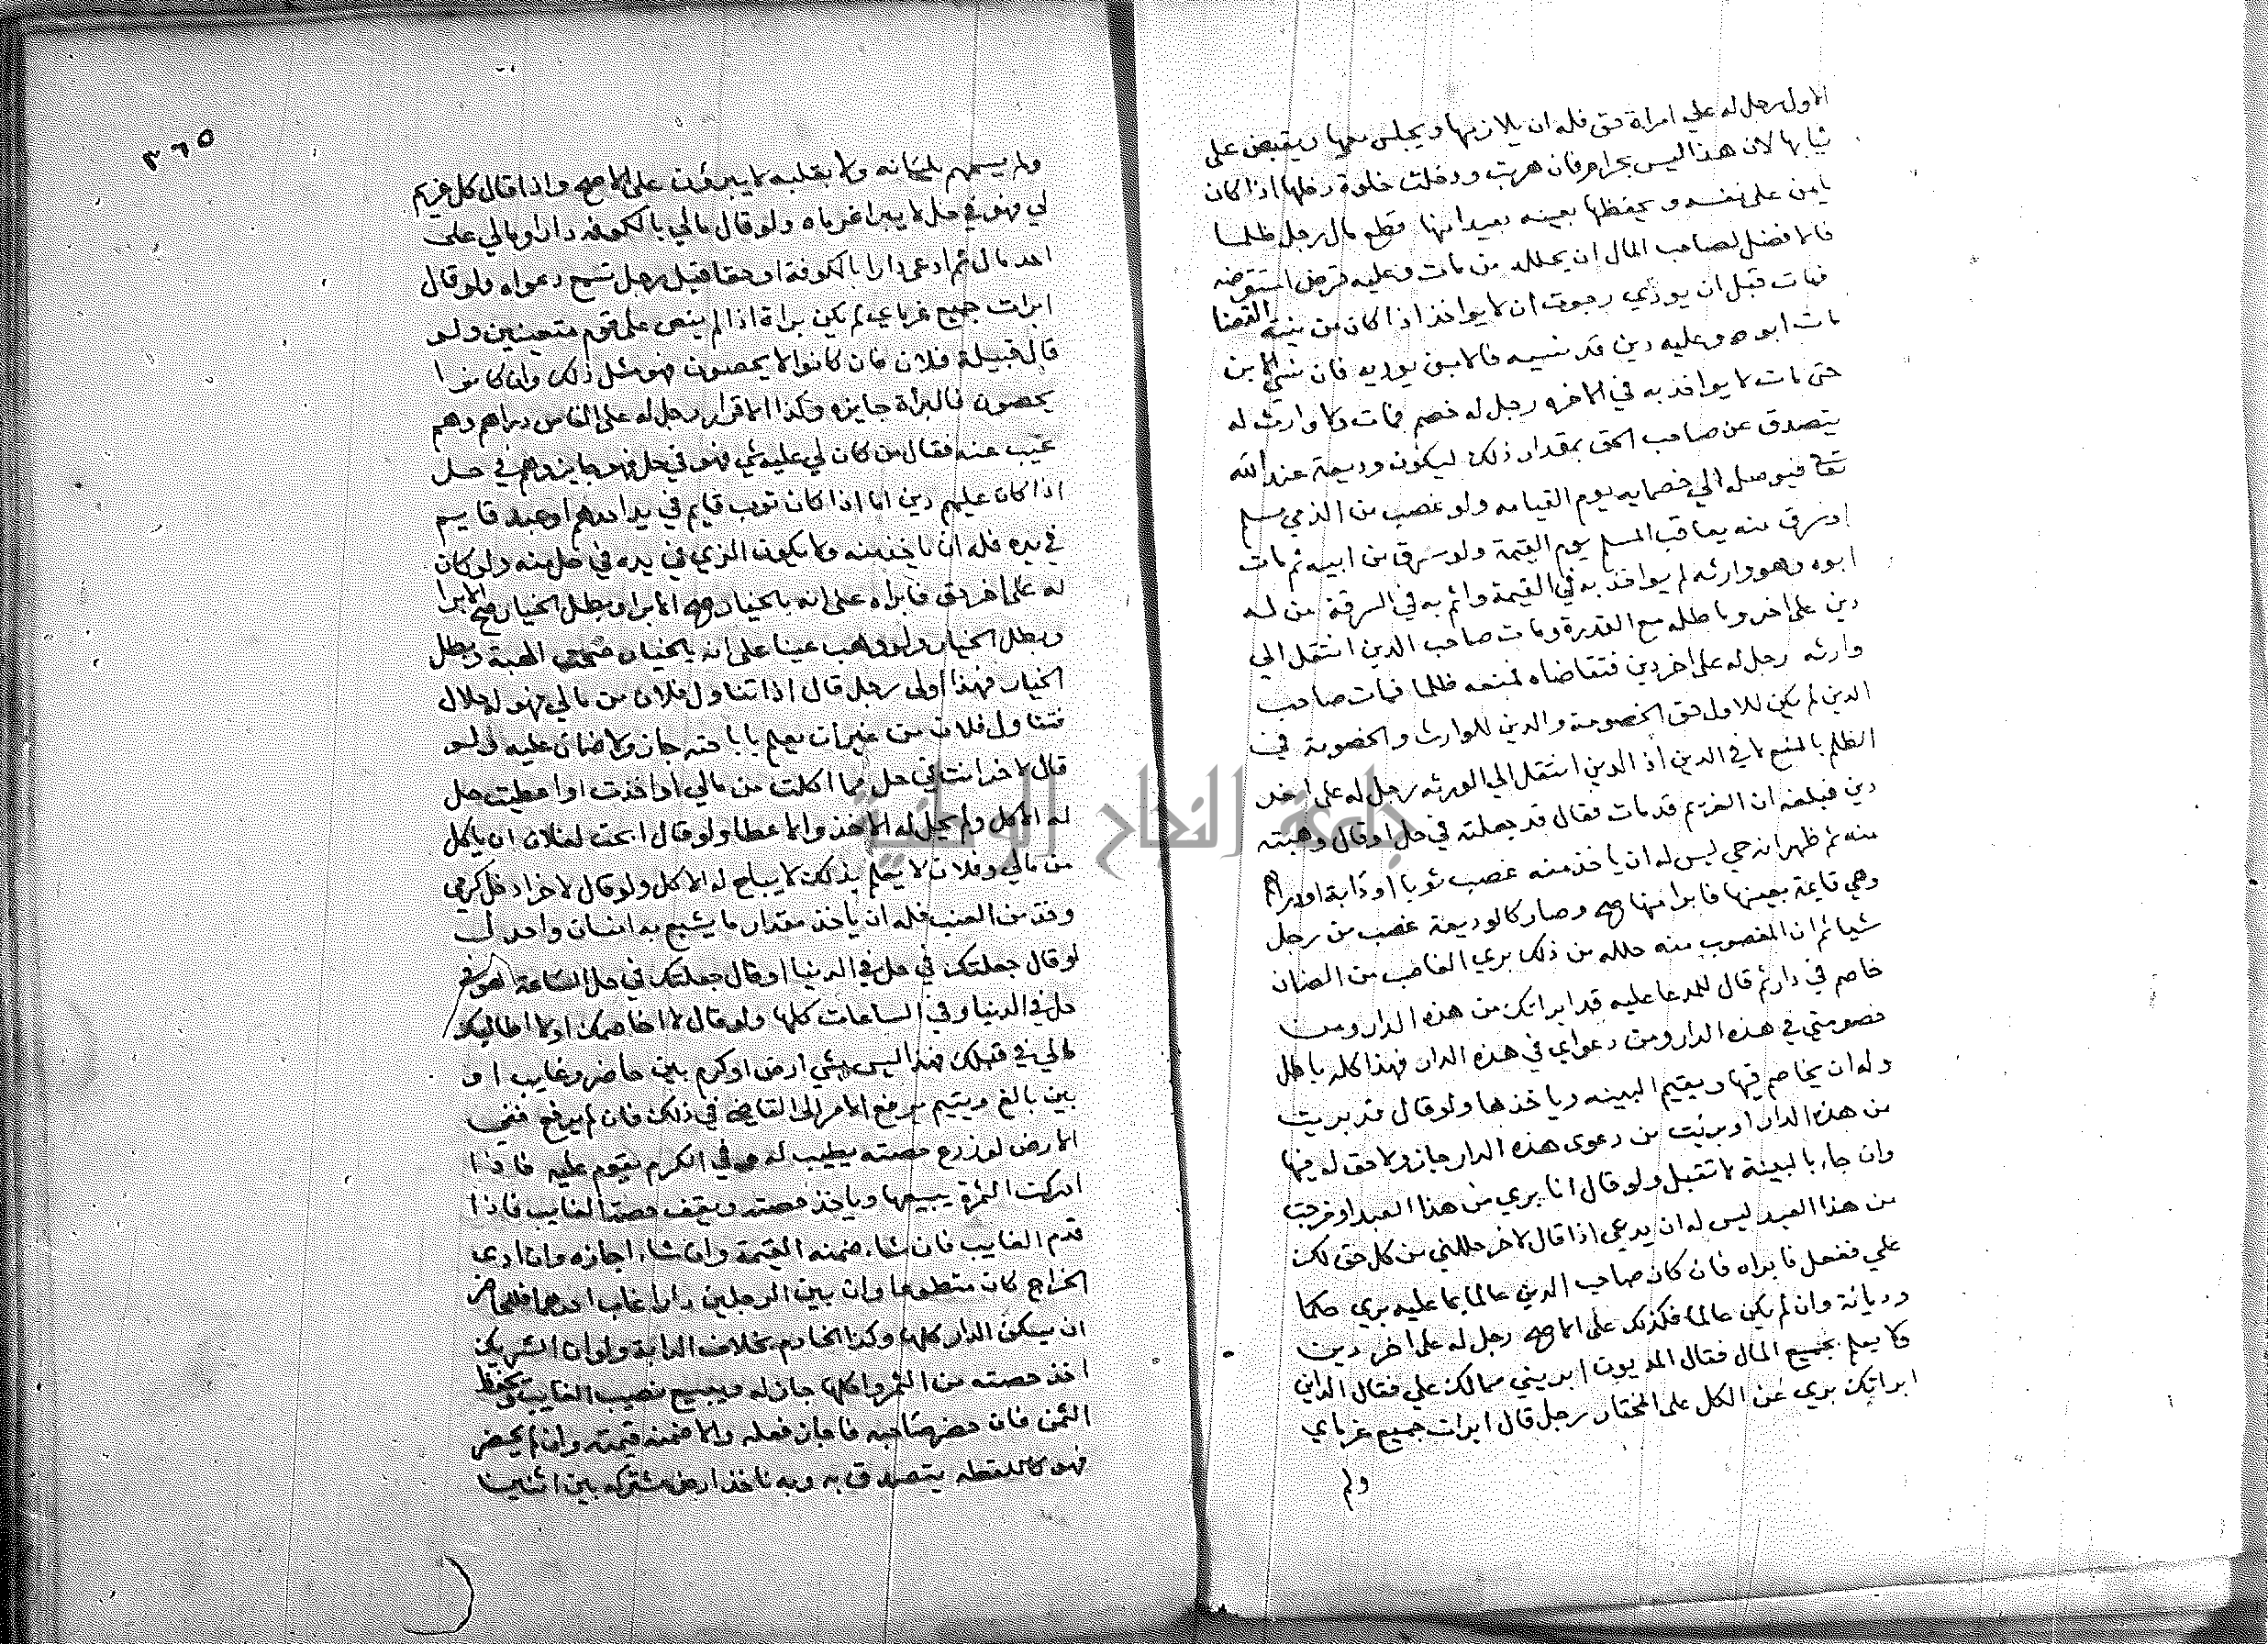 الاول رجل له علي امراة حق فله ان يلازمها ويجلس معها ويقبض على
ثيابها لان هذا ليس بحرام فان هربت ودخلت خلوة دخلها اذا كان
يامن على نفسه ويحفظها بعينه بعيدا منها قطع مال رجل ظلما
فالافضل لصاحب المال ان يحلله من مات وعليه قرض استقرضه
فمات قبل ان يودي رجوت ان لا يواخذ اذا كان من نيته القضا
مات ابوه وعليه دين قد نسيه فالابن يوديه فان نسي الابن
حتى مات لا يواخذ به في الاخره رجل له خصم فمات ولا وارث له
يتصدق عن صاحب الحق بمقدار ذلك ليكون وديعة عند الله
تعا فيوصله الي خصمايه يوم القيامه ولو غصب من الذمي مسلم
او سرق منه يعاقب المسلم يوم القيمة ولو سرق من ابيه ثم مات
ابوه وهو وارثه لم يواخذ به في القيمة واثم به في السرقة من له
دين على اخر وماطله مع القدرة ومات صاحب الدين انتقل الي
وارثه رجل له على اخر دين فتقاضاه فمنعه ظلما فمات صاحب
الدين لم يكن للاول حق الخصومة والدين للوارث والخصومة في
الظلم بالمنع لا في الدين اذ الدين انتقل الي الورثه رجل له على اخر
دين فبلغه ان الغريم قد مات فقال قد جعلته في حل او قال وهبته
منه ثم ظهر انه حي ليس له ان ياخذ منه غصب ثوبا او دابة او دراهم
وهي قايمة بعينها فابرا منها صح وصار كالوديعة غصب من رجل
شيا ثم ان المغصوب منه حلله من ذلك بري الغاصب من الضمان
خاصم في دار ثم قال للمدعا عليه قد ابراتك من هذه الدار ومن
خصومتي في هذه الدار ومن دعواي في هذه الدار فهذا كله باطل
وله ان يخاصم فيها ويقيم البينه وياخذها ولو قال قد بريت
من هذه الدار او بريت من دعوى هذه الدار جاز ولا حق له فيها
وان جاء بالبينة لا تقبل ولو قال انا بري من هذا العبد او خرجت
من هذا العبد ليس له ان يدعي اذا قال لاخر حللني من كل حق لك
علي ففعل فابراه فان كان صاحب الدين عالما بما عليه بري حكما
وديانة وان لم يكن عالما فكذلك على الاصح رجل له على اخر دين
ولا يعلم بجميع المال فقال المديون ابريني مما لك علي فقال الداين
ابراتك بري عن الكل على المختار رجل قال ابرات جميع غرماي
ولم
٣٦٥
ولم يسمهم بلسانه ولا بقلبه لا يبرؤن على الاصح واذا قال كل غريم
لي فهو في حل لا يبرا غرماه ولو قال مالي بالكوفه دار او مالي على
احد مال ثم ادعى دارا بالكوفة او حقا قبل رجل تسمع دعواه ولو قال
ابرات جميع غرماي لم يكن براة اذا لم ينص على قوم متعينين ولو
قال قبيلة فلان فان كانوا لا يحصون فهو مثل ذلك وان كانوا
يحصون فالبراة جايزه وكذا الاقرار رجل له على الناس دراهم وهم
غيب عنه فقال من كان لي عليه شي فهو في حل فهو جايز وهم في حل
اذا كان عليهم دين اما اذا كان ثوب قايم في يد احدهم او عبد قايم
في يده فله ان ياخذ منه ولا يكون الذي في يده في حل منه ولو كان
له على اخر حق فابراه على انه بالخيار صح الابرا وبطل الخيار صح الابرا
وبطل الخيار ولو وهب عينا على انه بالخيار صحت الهبة وبطل
الخيار فهذا اولى رجل قال اذا تناول فلان من مالي فهو له حلال
فتناول فلان من غير ان يعلم باباحته جاز ولا ضمان عليه ولو
قال لاخر انت في حل مما اكلت من مالي او اخذت او اعطيت حل
له الاكل ولم يحل له الاخذ والاعطا ولو قال ابحت لفلان ان ياكل
من مالي وفلان لا يعلم بذلك لا يباح له الاكل ولو قال لاخر ادخل كرمي
وخذ من العنب فله ان ياخذ مقدار ما يشبع به انسان واحد
لو قال جعلتك في حل في الدنيا او قال جعلتك في حل الساعة فهو في
حل في الدنيا وفي الساعات كلها ولو قال لا اخاصمك او لا اطالبك
مالي في قبلك فهذا ليس بشي ارض او كرم بين حاضر وغايب او
بين بالغ ويتيم يرفع الامر الى القاضي في ذلك فان لم يرفع ففي
الارض لو زرع حصته يطيب له وفي الكرم يقوم عليه فاذا
ادركت الثمرة يبيعها وياخذ حصته ويقف حصة الغايب فاذا
قدم الغايب فان شاء ضمنه القيمة وان شاء اجازه وان ادى
الخراج كان متطوعا وان بين الرجلين دار غاب احدهما فللحاضر
ان يسكن الدار كلها وكذا الخادم بخلاف الدابة ولو ان الشريك
اخذ حصته من الثمر واكلها جاز له ويبيع نصيب الغايب ويحفظ
الثمن فان حضر صاحبه فاجاز فعله والا ضمنه قيمته وان لم يحضر
فهو كاللقطه يتصدق به وبه ناخذ ارض مشتركه بين اثنين